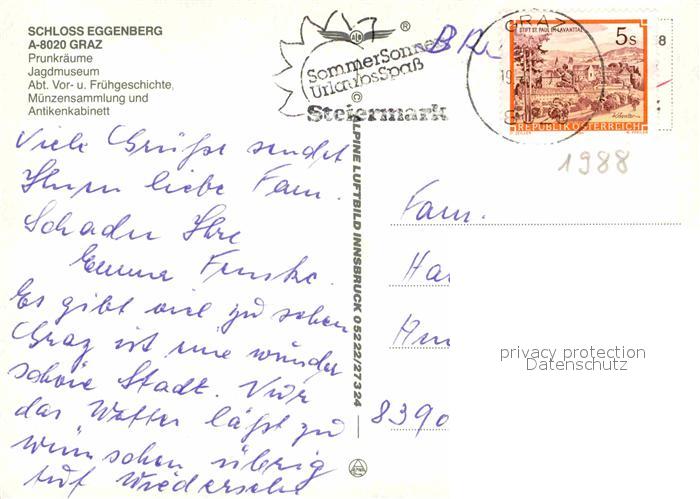 SCHLOSS EGGENBERG
A-8020 GRAZ
Prunkräume
Jagdmuseum
Abt. Vor- u. Frühgeschichte,
Münzensammlung und
Antikenkabinett
Viele Grüße sendet
Ihnen liebe Fam.
Schadn Ihre
Emma Funke.
Es gibt viel zu sehen
Graz ist eine wunder
schöne Stadt. Nur
das Wetter läßt zu
wünschen übrig
Auf Wiedersehn
ALPINE LUFTBILD INNSBRUCK 05222/27324
®
SommerSonne
UrlaubsSpaß
Steiermark
GRAZ
STIFT ST. PAUL IM LAVANTTAL
5 S
REPUBLIK ÖSTERREICH
8
1988
Fam.
Ha
8390
privacy protection
Datenschutz